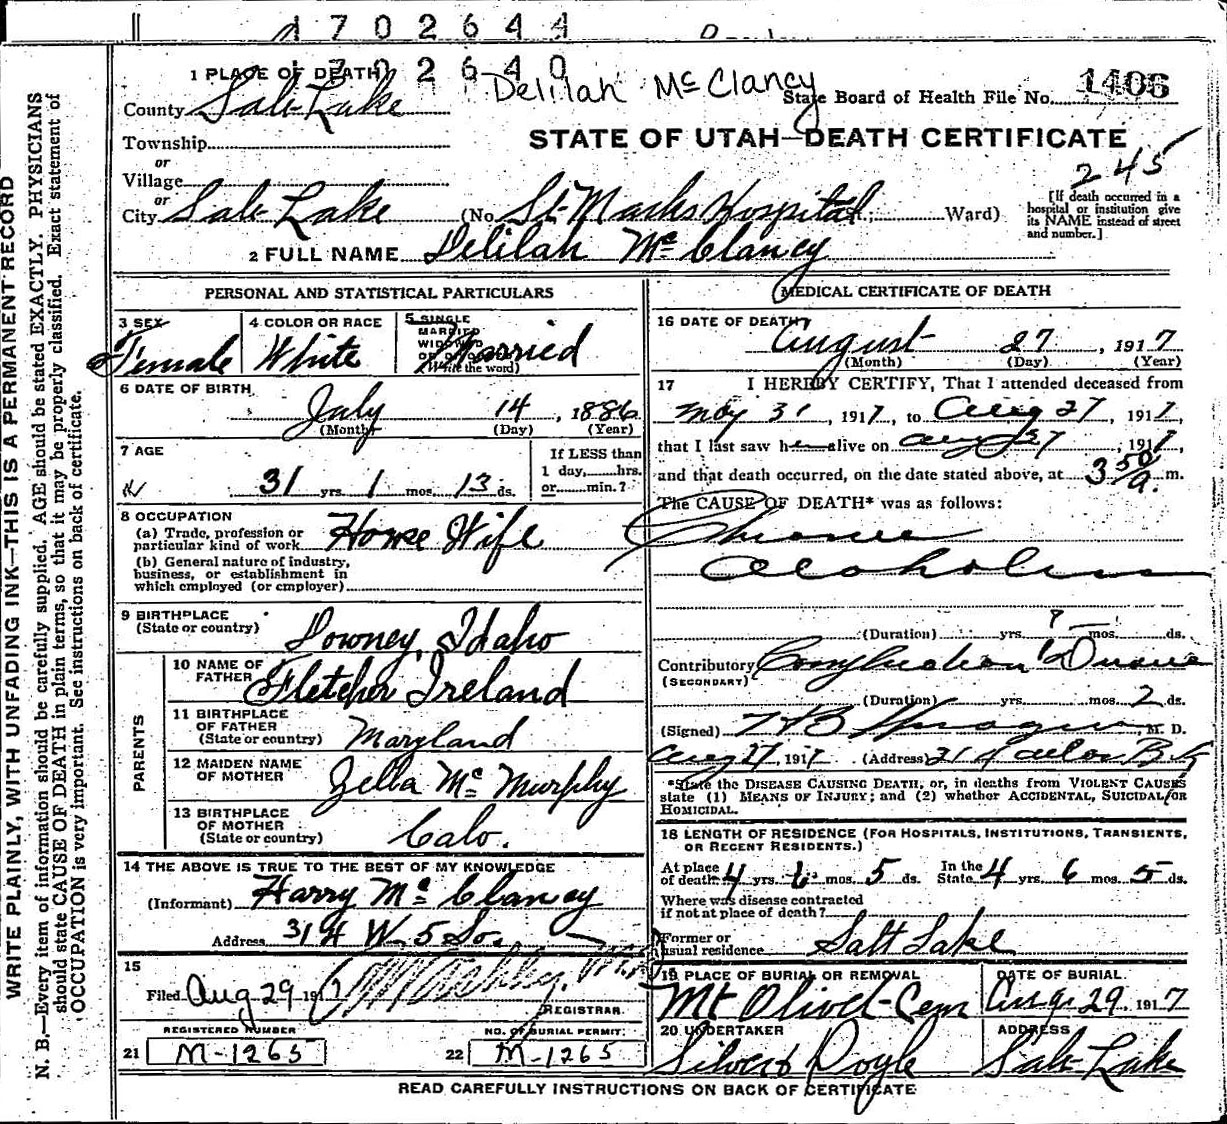 1702644
1702640
Delilah McClancy
1 PLACE OF DEATH
County Salt Lake
State Board of Health File No. 1406
Township
STATE OF UTAH—DEATH CERTIFICATE
or
Village
245
or
City Salt Lake (No. St Marks Hospital; Ward)
[If death occurred in a
hospital or institution give
its NAME instead of street
and number.]
2 FULL NAME Delilah McClancy
PERSONAL AND STATISTICAL PARTICULARS
3 SEX
Female
4 COLOR OR RACE
White
5 SINGLE
MARRIED
WIDOWED
OR DIVORCED
(Write the word)
Married
6 DATE OF BIRTH
July 14, 1886
(Month) (Day) (Year)
7 AGE
31 yrs. 1 mos. 13 ds.
If LESS than
1 day, hrs.
or min.?
8 OCCUPATION
(a) Trade, profession or
particular kind of work House Wife
(b) General nature of industry,
business, or establishment in
which employed (or employer)
9 BIRTHPLACE
(State or country) Downey, Idaho
PARENTS
10 NAME OF
FATHER Fletcher Ireland
11 BIRTHPLACE
OF FATHER
(State or country) Maryland
12 MAIDEN NAME
OF MOTHER Zella McMurphy
13 BIRTHPLACE
OF MOTHER
(State or country) Colo.
14 THE ABOVE IS TRUE TO THE BEST OF MY KNOWLEDGE
(Informant) Harry McClancy
Address 314 W. 5 So.
15
Filed Aug 29 1917
REGISTRAR
REGISTERED NUMBER
21 M-1265
NO. OF BURIAL PERMIT
22 M-1265
MEDICAL CERTIFICATE OF DEATH
16 DATE OF DEATH
August 27, 1917
(Month) (Day) (Year)
17 I HEREBY CERTIFY, That I attended deceased from
May 31, 1917, to Aug 27, 1917,
that I last saw h alive on Aug 27, 1917,
and that death occurred, on the date stated above, at 3 50 a. m.
The CAUSE OF DEATH* was as follows:
Chronic
Alcoholism
(Duration) yrs. mos. ds.
Contributory
(SECONDARY)
(Duration) yrs. mos. 2 ds.
(Signed) M. D.
Aug 27, 1917 (Address)
*State the DISEASE CAUSING DEATH, or, in deaths from VIOLENT CAUSES
state (1) MEANS OF INJURY; and (2) whether ACCIDENTAL, SUICIDAL, OR
HOMICIDAL.
18 LENGTH OF RESIDENCE (FOR HOSPITALS, INSTITUTIONS, TRANSIENTS,
OR RECENT RESIDENTS.)
At place
of death 4 yrs. 6 mos. 5 ds.
In the
State 4 yrs. 6 mos. 5 ds.
Where was disease contracted
if not at place of death?
Former or
usual residence Salt Lake
19 PLACE OF BURIAL OR REMOVAL
Mt Olivet Cem
DATE OF BURIAL
Aug. 29, 1917
20 UNDERTAKER
Doyle
ADDRESS
Salt Lake
READ CAREFULLY INSTRUCTIONS ON BACK OF CERTIFICATE
WRITE PLAINLY, WITH UNFADING INK—THIS IS A PERMANENT RECORD
N. B.—Every item of information should be carefully supplied. AGE should be stated EXACTLY. PHYSICIANS
should state CAUSE OF DEATH in plain terms, so that it may be properly classified. Exact statement of
OCCUPATION is very important. See instructions on back of certificate.